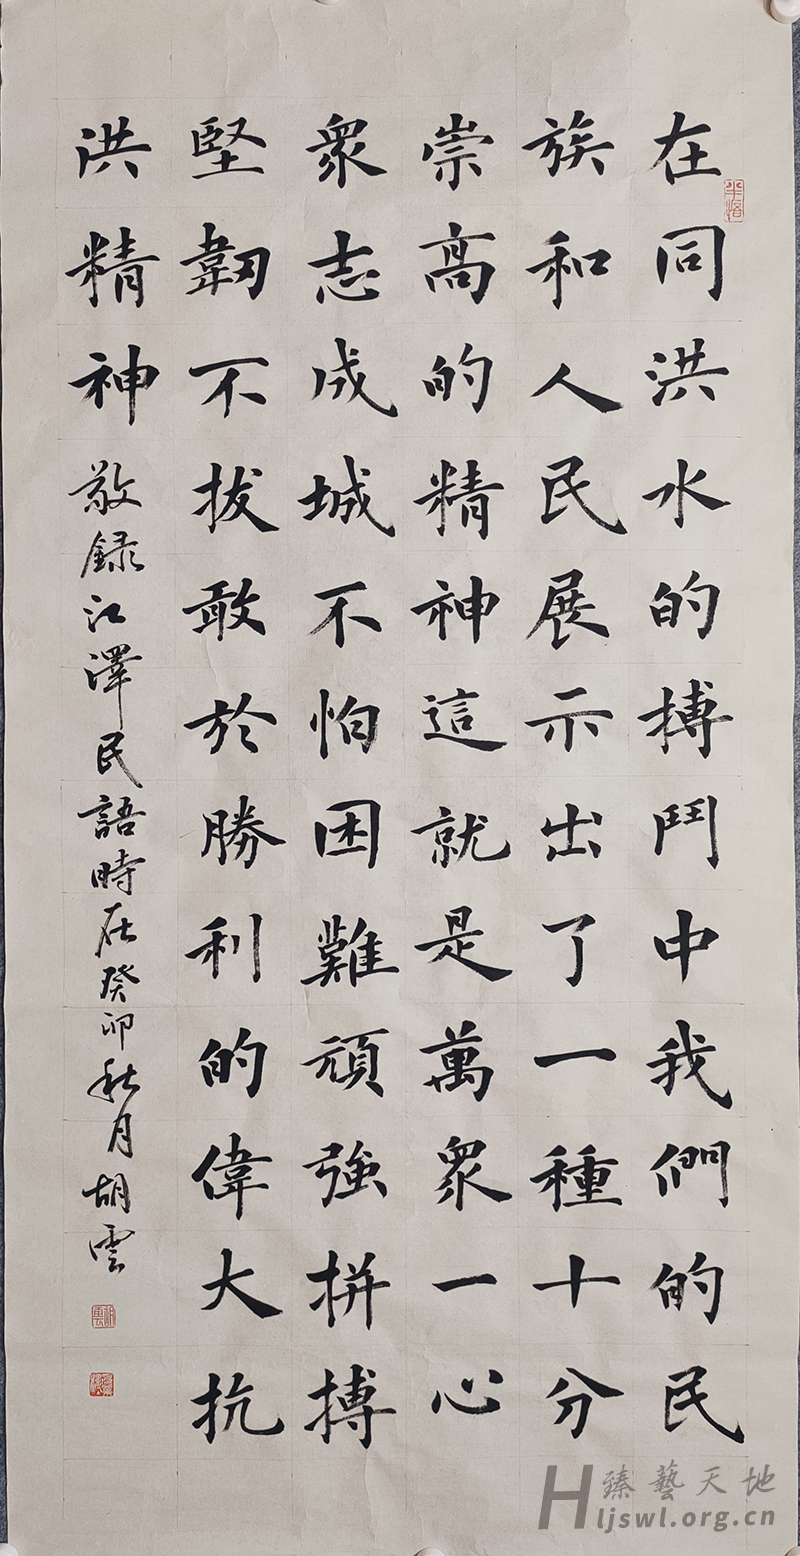 在同洪水的搏鬥中我們的民
族和人民展示出了一種十分
崇高的精神這就是萬衆一心
衆志成城不怕困難頑強拼搏
堅韌不拔敢於勝利的偉大抗
洪精神 敬録江澤民語時在癸卯秋月胡雲
臻藝天地
Hljswl.org.cn